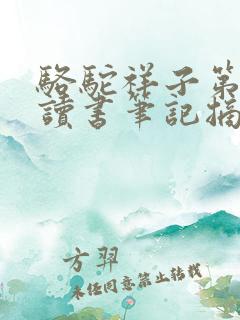 駱駝祥子第
讀書筆記摘
方羿
未经同意禁止转载